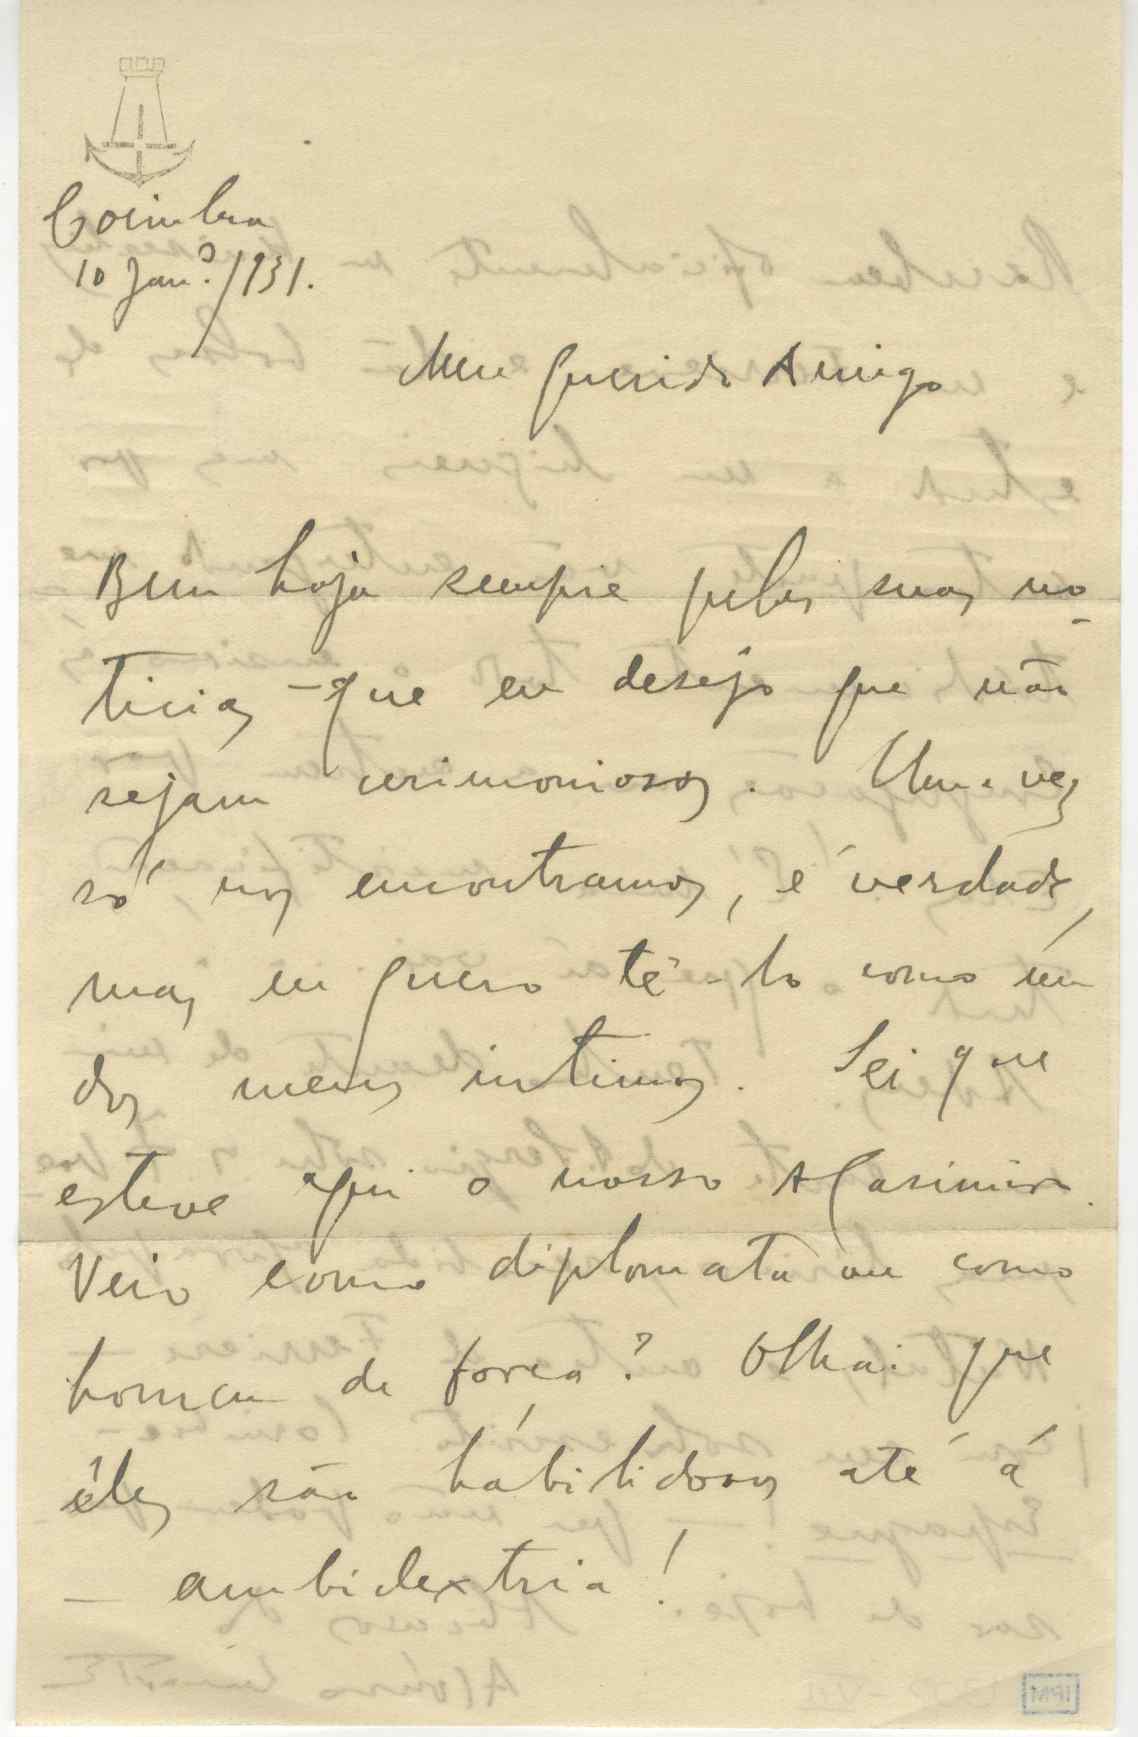 Coimbra
10 Jan.º/931.
Meu querido Amigo
Bem haja sempre pelas suas no-
ticias – que eu desejo que não
sejam cerimoniosas. Uma vez
só nos encontramos, é verdade,
mas eu quero tê-lo como úm
dos meus intimos. Sei que
esteve aqui o nosso Casimiro.
Veio como diplomata ou como
homem de força? Olhai que
êles são hábilidosos até á
– ambidextria!
IPM